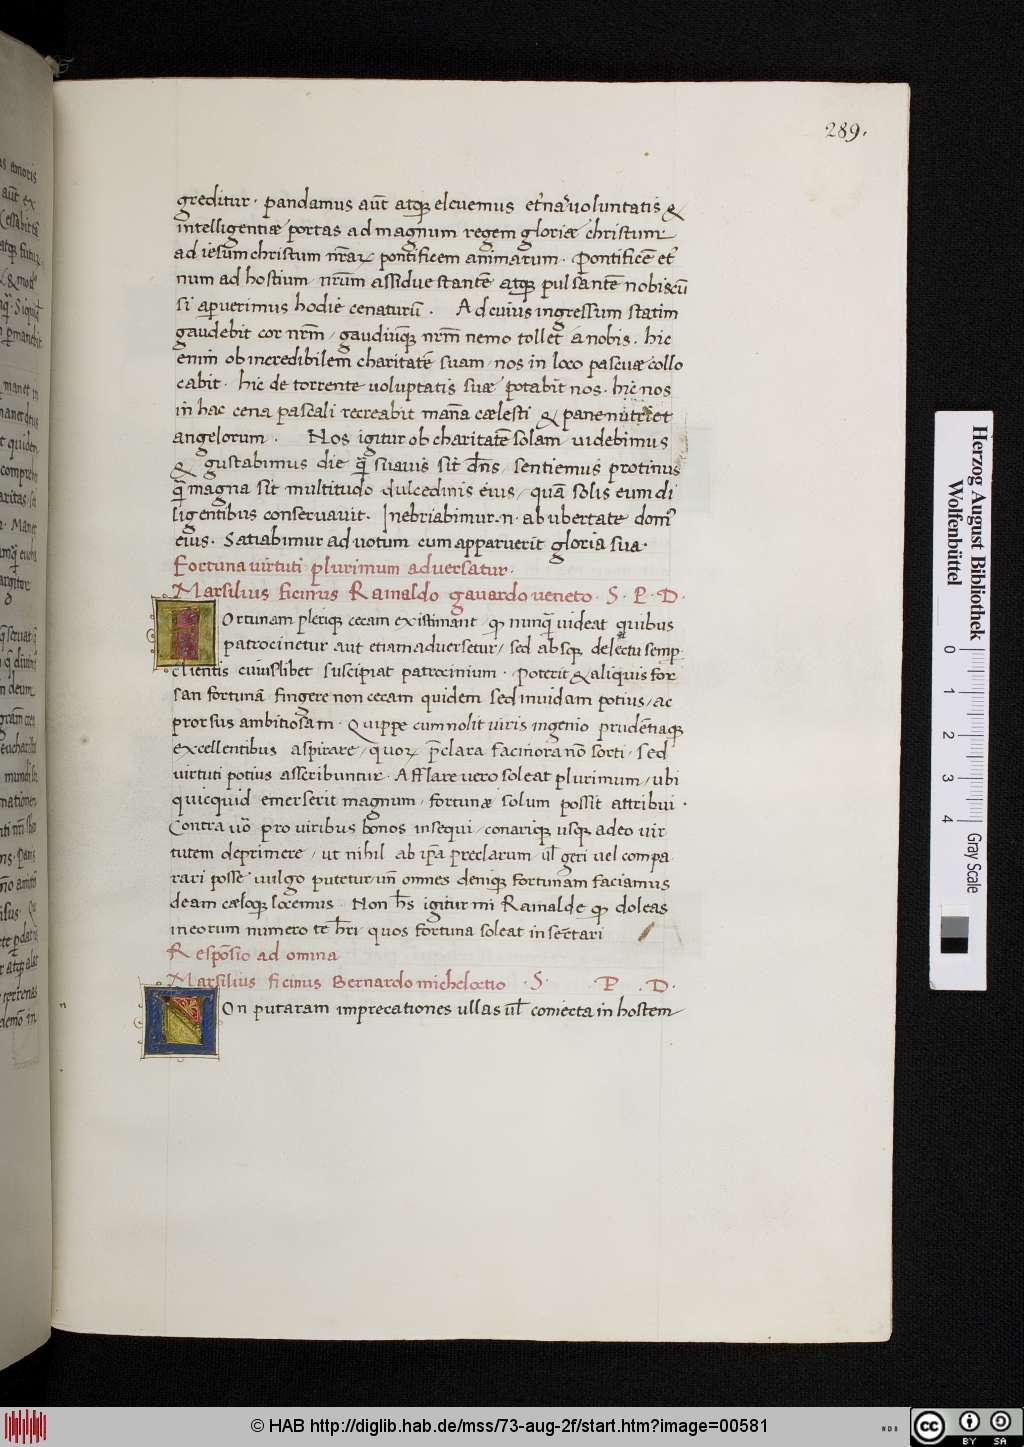 289.
greditur. pandamus aūt atqꝫ elevemus et̕na᷒ voluntatis &
intelligentiæ portas ad magnum regem gloriæ christum
ad iesum christum nr̄aꝝ pontificem animarum. Pontificē et̕
num ad hostium nr̄um assidue stantē atqꝫ pulsantē nobiscū
si aperuerimus hodie cenaturū. Ad cuius ingressum statim
gaudebit cor nr̄m, gaudiūqꝫ nr̄m nemo tollet a nobis. hic
enim ob incredibilem charitatē suam nos in loco pascuæ collo
cabit. hic de torrente voluptatis suæ potabit nos. hic nos
in hac cena pascali recreabit māna cælesti & pane nutriet
angelorum. Nos igitur ob charitatē solam videbimus
& gustabimus die q̄ suavis sit dn̄s, sentiemus protinus
q̄ magna sit multitudo dulcedinis eius, quā solis eum di
ligentibus conservavit. Inebriabimur .n. ab ubertate dom᷒
eius. Satiabimur ad votum cum apparuerit gloria sua.
Fortuna virtuti plurimum adversatur.
Marsilius ficinus Rainaldo gavardo veneto. S. P. D.
Fortunam pleriqꝫ cecam existimant, qꝫ nunq̄ videat quibus
patrocinetur aut etiam adversetur, sed absqꝫ delectu semp̱
clientis cuiuslibet suscipiat patrocinium. Poterit & aliquis for
san fortunā fingere non cecam quidem sed invidam potius, ac
prorsus ambitiosam. Quippe cum nolit viris ingenio prudētiaqꝫ
excellentibus aspirare, quoꝝ p̄clara facinora nō sorti, sed
virtuti potius asscribuntur. Afflare vero soleat plurimum, ubi
quicquid emerserit magnum, fortunæ solum possit attribui.
Contra vō pro viribus bonos insequi, conariqꝫ usqꝫ adeo vir
tutem deprimere, ut nihil ab ip̄a preclarum ul̄ geri vel compa
rari posse vulgo putetur, un̄ omnes deniqꝫ fortunam faciamus
deam cæloqꝫ locemus. Non h̄s igitur mi Rainalde qꝫ doleas
in eorum numero te h̄ri quos fortuna soleat insectari
Responsio ad omina
Marsilius ficinus Bernardo micheloctio . S. P. D.
Non putaram imprecationes ullas ul̄ coniecta in hostem
Herzog August Bibliothek
Wolfenbüttel
0 1 2 3 4 Gray Scale
© HAB http://diglib.hab.de/mss/73-aug-2f/start.htm?image=00581
WDB
cc BY SA